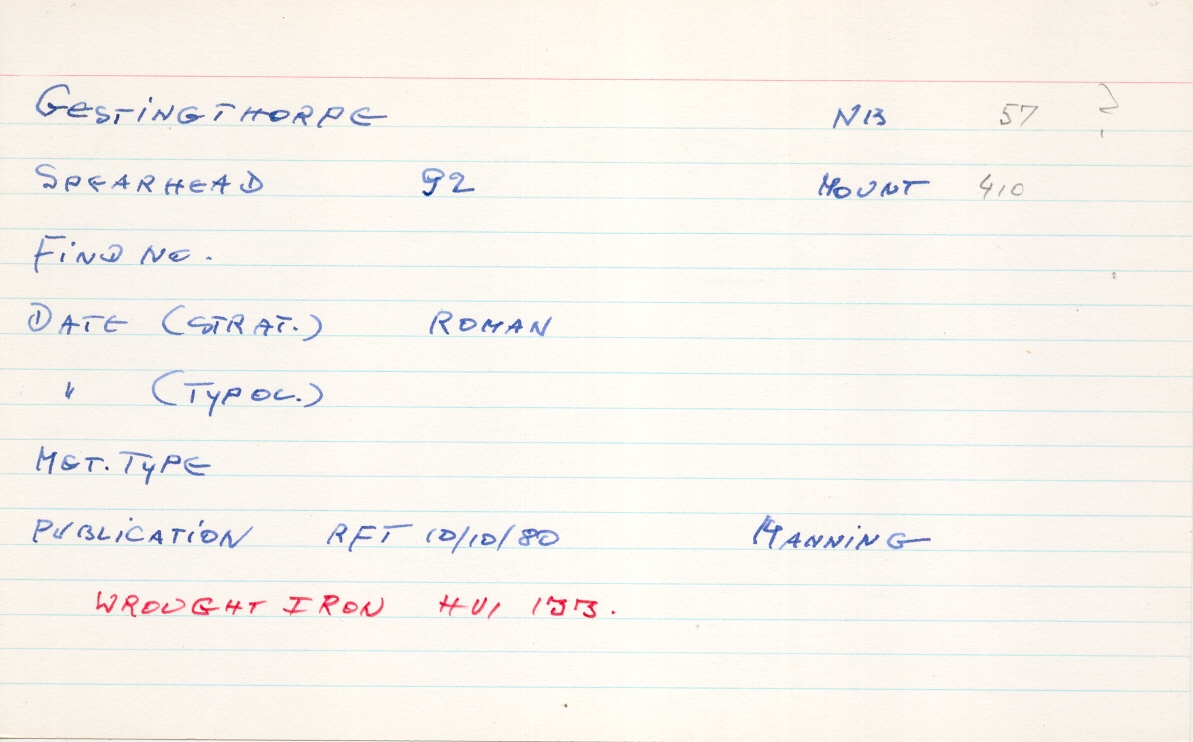 GESTINGTHORPE NB 57 ?
SPEARHEAD 92 MOUNT 410
FIND NO.
DATE (STRAT.) ROMAN
" (TYPOL.)
MET. TYPE
PUBLICATION RFT 10/10/80 MANNING
WROUGHT IRON HV1 133.